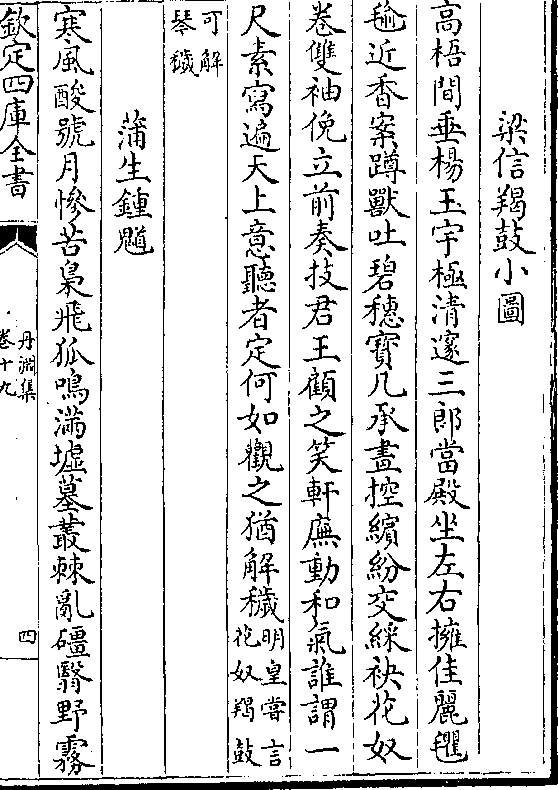 梁信羯鼓小圖
高梧間垂楊玉宇極清邃三郎當殿坐左右擁佳麗氍
毹近香案蹲獸吐碧穗寶几承畫控繽紛交綵袂花奴
卷雙袖俛立前奏技君王顧之笑軒廡動和氣誰謂一
尺素寫遍天上意聽者定何如觀之猶解穢明皇嘗言花奴羯鼓
可解琴穢
蒲生鍾馗
寒風酸號月慘苦梟飛狐鳴滿墟墓叢棘亂礓翳野霧
欽定四庫全書
丹淵集
卷十九
四